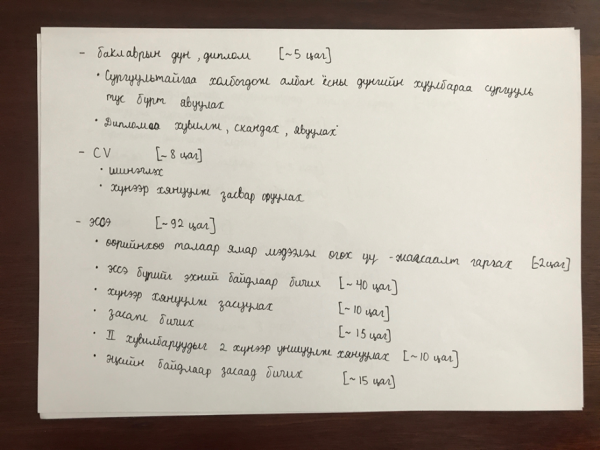 - баклаврын дүн, диплом [~5 цаг]
• Сургуультайгаа холбогдож албан ёсны дүнгийн хуулбараа сургууль
тус бүрт явуулах
• Дипломоо хувилж, скандах, явуулах
- CV [~8 цаг]
• шинэглэх
• хүнээр хянуулж засвар оруулах
- эсээ [~92 цаг]
• өөрийнхөө талаар ямар мэдээлэл өгөх үү - жагсаалт гаргах [~2цаг]
• эсээ бүрийг эхний байдлаар бичих [~40 цаг]
• хүнээр хянуулж засуулах [~10 цаг]
• засаж бичих [~15 цаг]
• II хувилбаруудыг 2 хүнээр уншуулж хянуулах [~10 цаг]
• эцсийн байдлаар засаад бичих [~15 цаг]